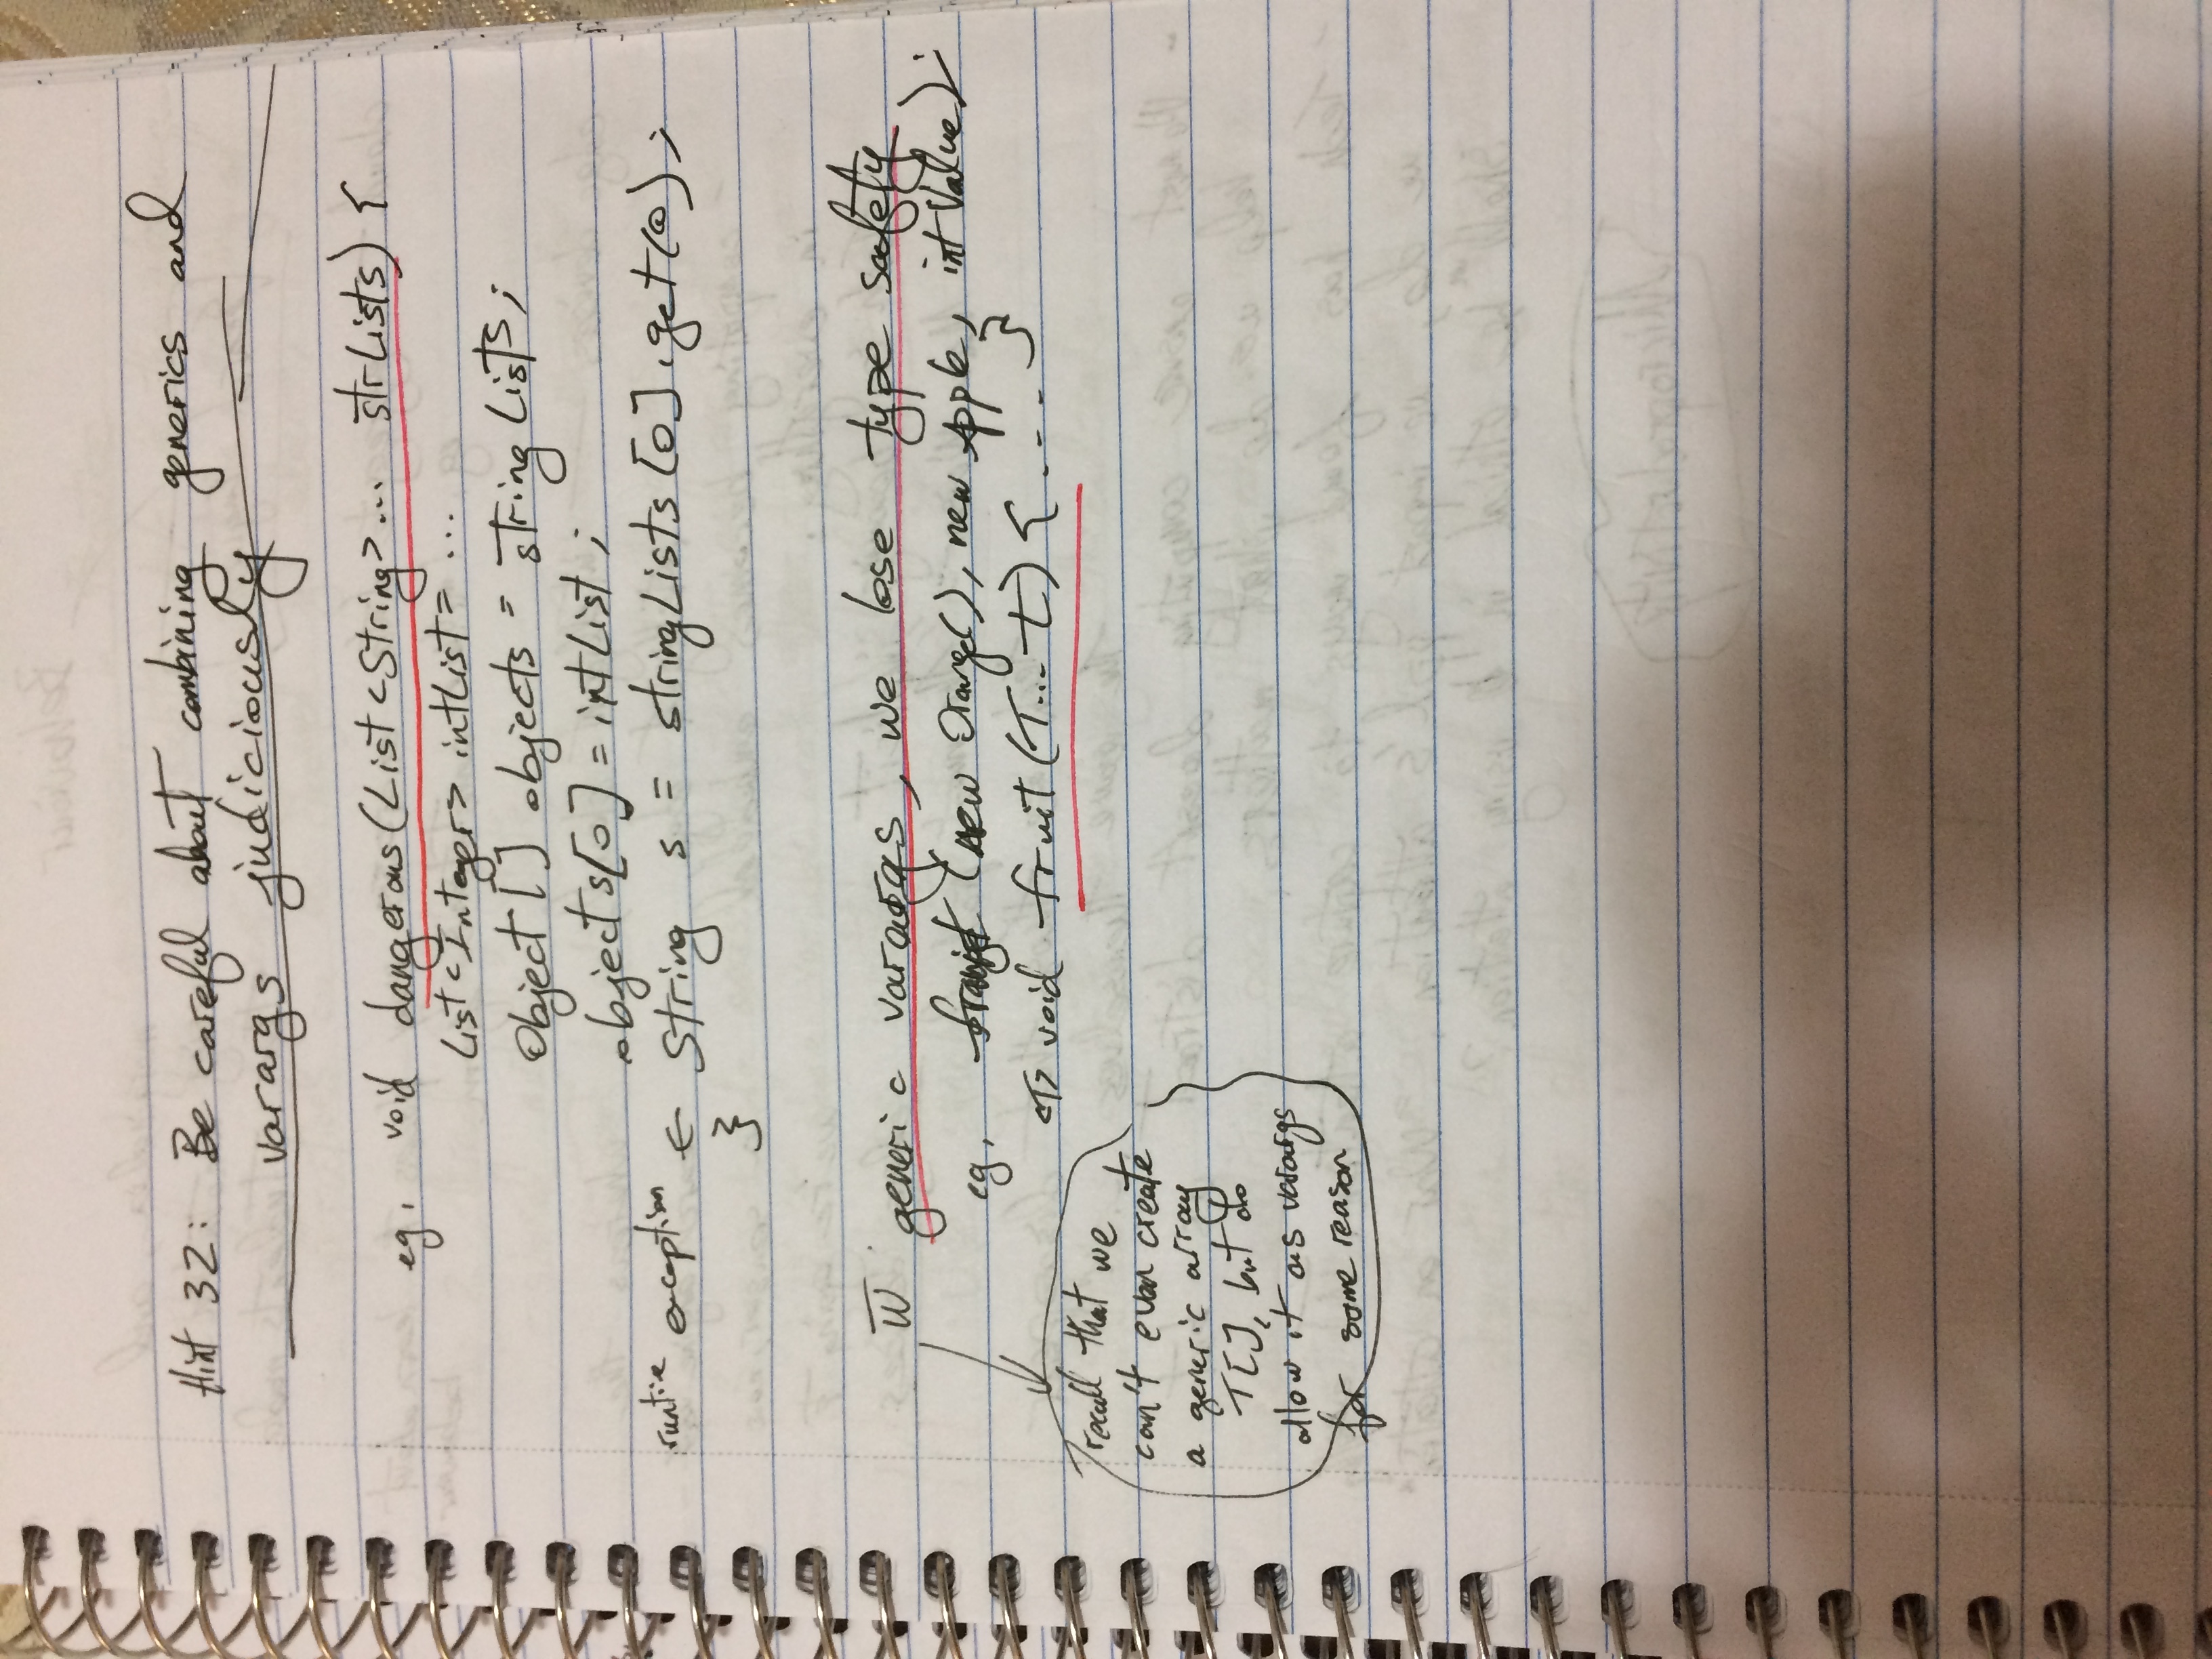 Hint 32: Be careful about combining generics and
varargs judiciously
eg. void dangerous(List<String>... strLists) {
List<Integer> intList= ...
Object[] objects = stringLists;
objects[0] = intList;
runtie exception ← String s = stringLists[0].get(0);
}
w̄ generic varargs, we lose type safety
eg. fruit (new Orange(), new Apple, intValue);
<T> void fruit(T... t) { ... }
recall that we
can't even create
a generic array
T[], but do
allow it as varargs
for some reason